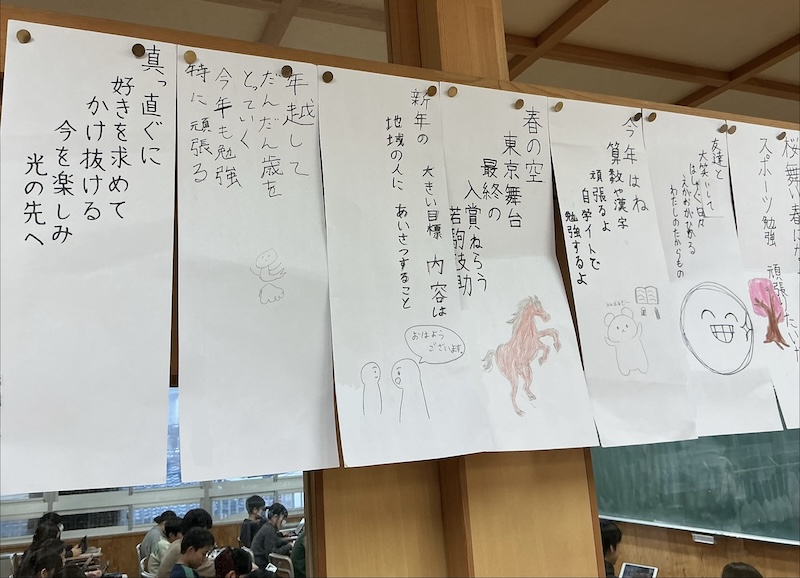 桜舞い春は
スポーツ勉強 頑張りたいな
友達と
大笑いして
はしゃぐ日々
えがおがひかる
わたしのたからもの
今年はね
算数や漢字
頑張るよ
自学ノートで
勉強するよ
春の空
東京舞台
最終の
入賞ねらう
若駒
新年の 大きい目標 内容は
地域の人に あいさつすること
おはよう
ございます。
年越して
だんだん歳を
とっていく
今年も勉強
特に頑張る
真っ直ぐに
好きを求めて
かけ抜ける
今を楽しみ
光の先へ